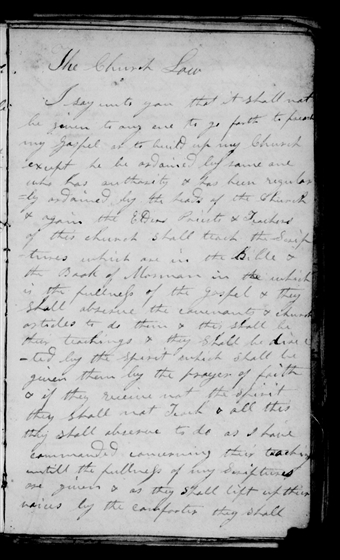 The Church Law
I say unto you that it shall not
be given to any one to go forth to preach
my Gospel or to build up my Church
except he be ordained by some one
who has authority & has been regular
-ly ordained by the heads of the Church
& again the Elders Priest & Teachers
of this church shall teach the Scrip
-tures which are in the Bible &
the Book of Mormon in the which
is the fullness of the Gospel & they
shall observe the covenants & church
articles to do them & this shall be
their teachings & they shall be direc
-ted by the spirit which shall be
given them by the prayer of faith
& if they receive not the spirit
they shall not Teach & all this
they shall observe to do as I have
commanded concerning their teaching
untill the fullness of my Scriptures
are given & as they shall lift up their
voices by the comforter they shall